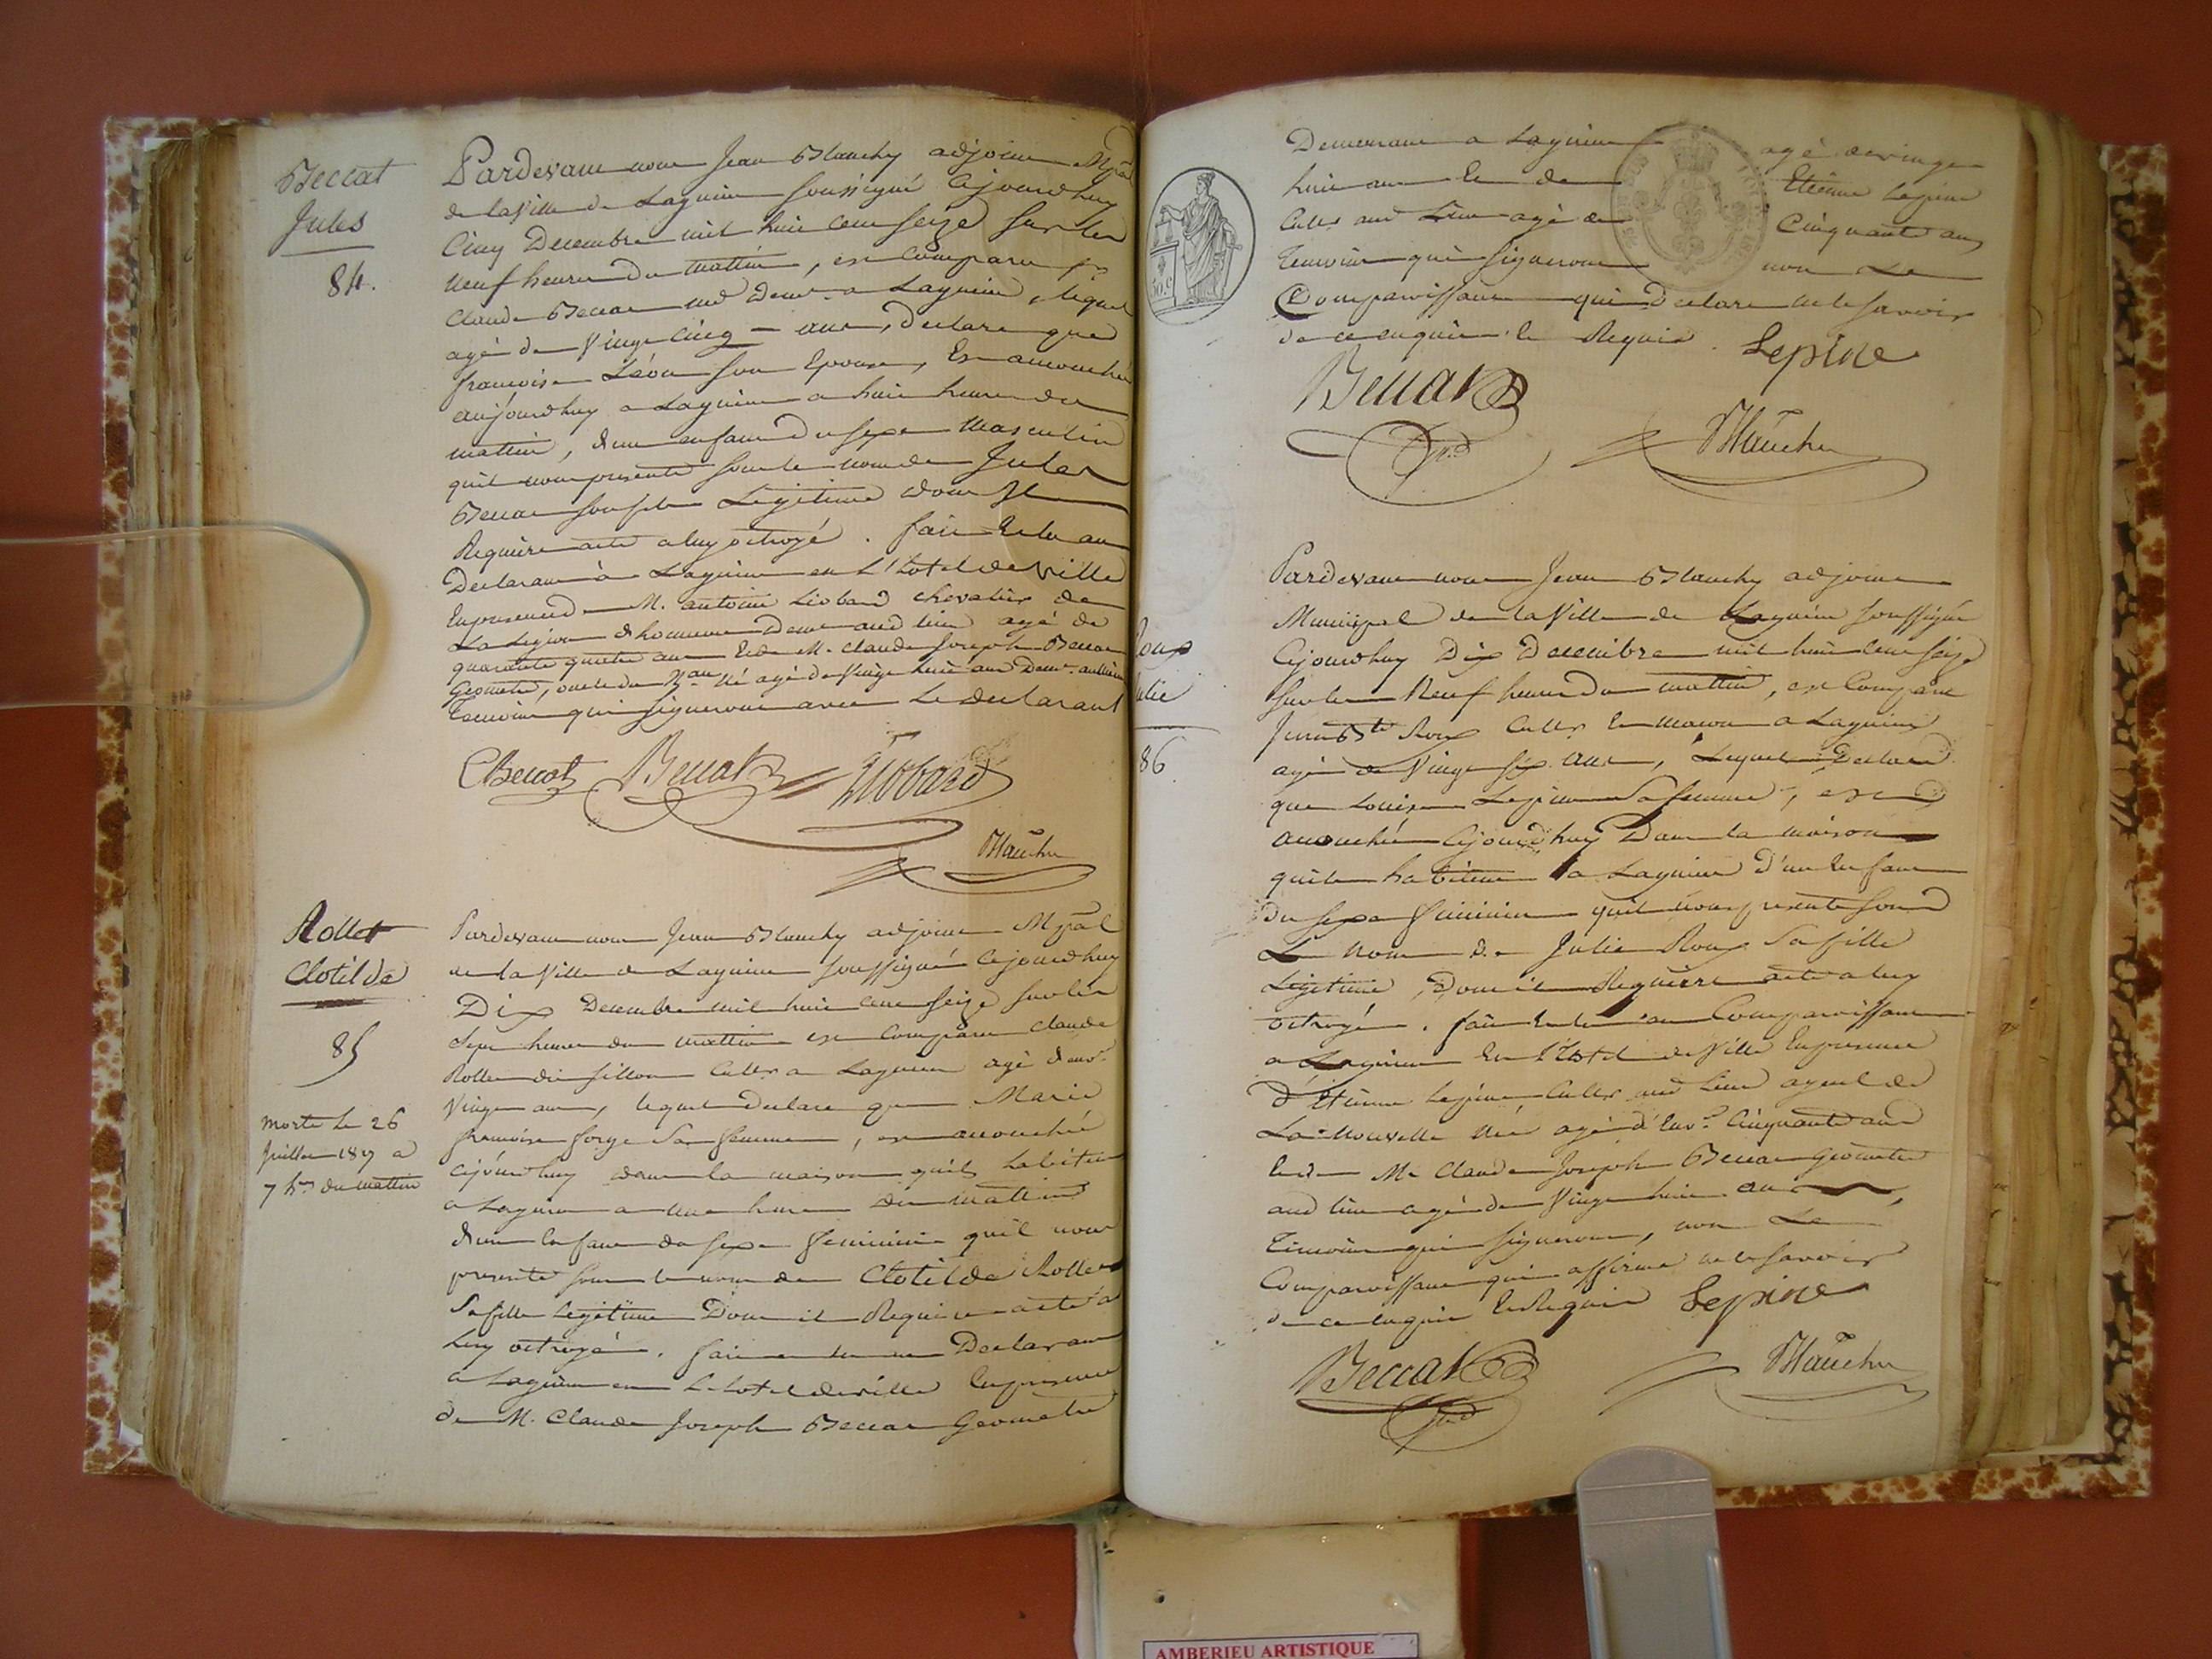 Beccat
Jules
84.
Pardevant nous Jean Blanchy adjoint Mpal
de la Ville de Lagnieu soussigné Cejourdhuy
Cinq Decembre mil huit cent seize sur les
neuf heures du mattin, est Comparu
Claude Beccat md demt a Lagnieu, lequel
agé de Vingt Cinq ans, declare que
françoise Léon son Epouse, Est accouchée
aujourdhuy a Lagnieu a huit heures du
mattin, d'un enfant du sexe Masculin
quil nous presente sous le nom de Jules
Beccat son fils Legitime dont Il
Requiere acte a luy octroyé. fait & lu au
Declarant à Lagnieu en L'hotel de Ville
En presence de M. antoine Liobard chevalier de
La Legion d'honneur Demt aud lieu agé de
quarante quatre ans & de M. Claude Joseph Beccat
Geometre, oncle du Nau Né agé de Vingt huit ans Demt aud lieu
Temoins qui signeront avec Le declarant
CBeccat Beccat Liobard
Blanchy
Rollet
Clotilde
85
morte le 26
Juillet 1817 a
7 hres du mattin
Pardevant nous Jean Blanchy adjoint Mpal
de la Ville de Lagnieu soussigné Cejourdhuy
Dix Decembre mil huit cent seize sur les
Sept heures du mattin est Comparu Claude
Rollet dit fillon Cultr a Lagnieu agé d'envn
Vingt ans, lequel declare que Marie
françoise forge Sa femme, est accouchée
cejourdhuy dans la maison quils habitent
a Lagnieu a une heure du mattin
d'un Enfant du sexe feminin quil nous
presente sous le nom de Clotilde Rollet
Sa fille Legitime Dont il Requiere acte a
Luy octroyé. fait & lu au Declarant
a Lagnieu en L'hotel de ville En presence
de M. Claude Joseph Beccat Geometre
Demeurant a Lagnieu agé de vingt
huit ans Et de Etienne Lepine
Cultr aud Lieu agé de Cinquante ans
Temoins qui signeront non Le
Comparoissant qui Declare ne le savoir
de ce enquis & Requis. Lepine
Beccat
Blanchy
Roux
Julie
86
Pardevant nous Jean Blanchy adjoint
Municipal de la Ville de Lagnieu soussigné
Cejourdhuy Dix Decembre mil huit cent seize
sur les Neuf heures du mattin, est Comparu
Jean Bte Roux Cultr & macon a Lagnieu
agé de Vingt six ans, Lequel Declare
que Louise Lepine Sa femme, est
accouchée Cejourdhuy Dans la maison
quils habitent a Lagnieu d'un Enfant
du sexe feminin quil nous presente sous
Le Nom de Julie Roux Sa fille
Legitime, Dont il Requiere acte a luy
octroyé. fait & lu au Comparoissant
a Lagnieu En l'hotel de Ville En presence
d'Etienne Lepine Cultr aud Lieu ayeul de
La Nouvelle Née agé d'Envn Cinquante ans
& de Mr Claude Joseph Beccat Geometre
aud lieu agé de Vingt huit ans,
Temoins qui signeront, non Le
Comparoissant qui affirme ne le savoir
de ce enquis & Requis Lepine
Beccat
Blanchy
AMBERIEU ARTISTIQUE